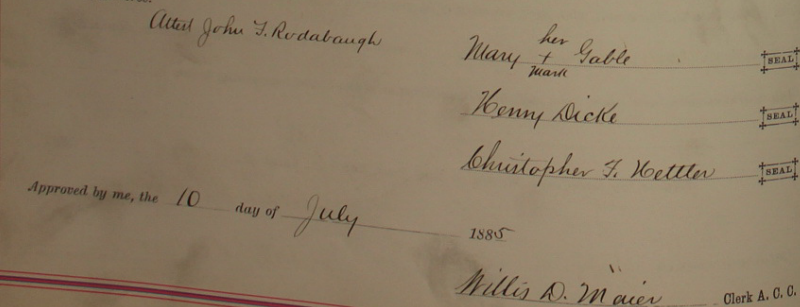 Attest John F. Rodabaugh
her
Mary + Gable SEAL
mark
Henry Dicke SEAL
Christopher F. Hettler SEAL
Approved by me, the 10 day of July 1885
Willis D. Maier Clerk A. C. C.